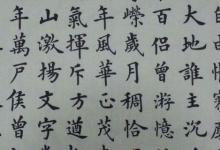 大地誰主沉
百侶曾游憶
嶸歲月稠恰
年風華正茂
氣揮斥方遒
山激揚文字
年萬戶侯曾